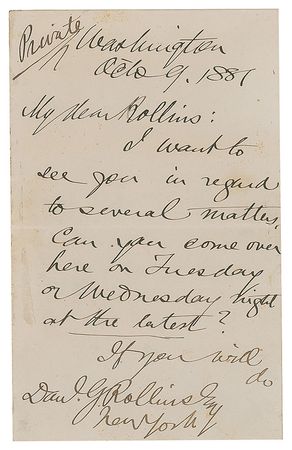 Private
Washington
Octo 9, 1881
My dear Rollins:
I want to
see you in regard
to several matters.
Can you come over
here on Tuesday
or Wednesday night
at the latest?
If you will
do
Danl. G Rollins Esq
New York